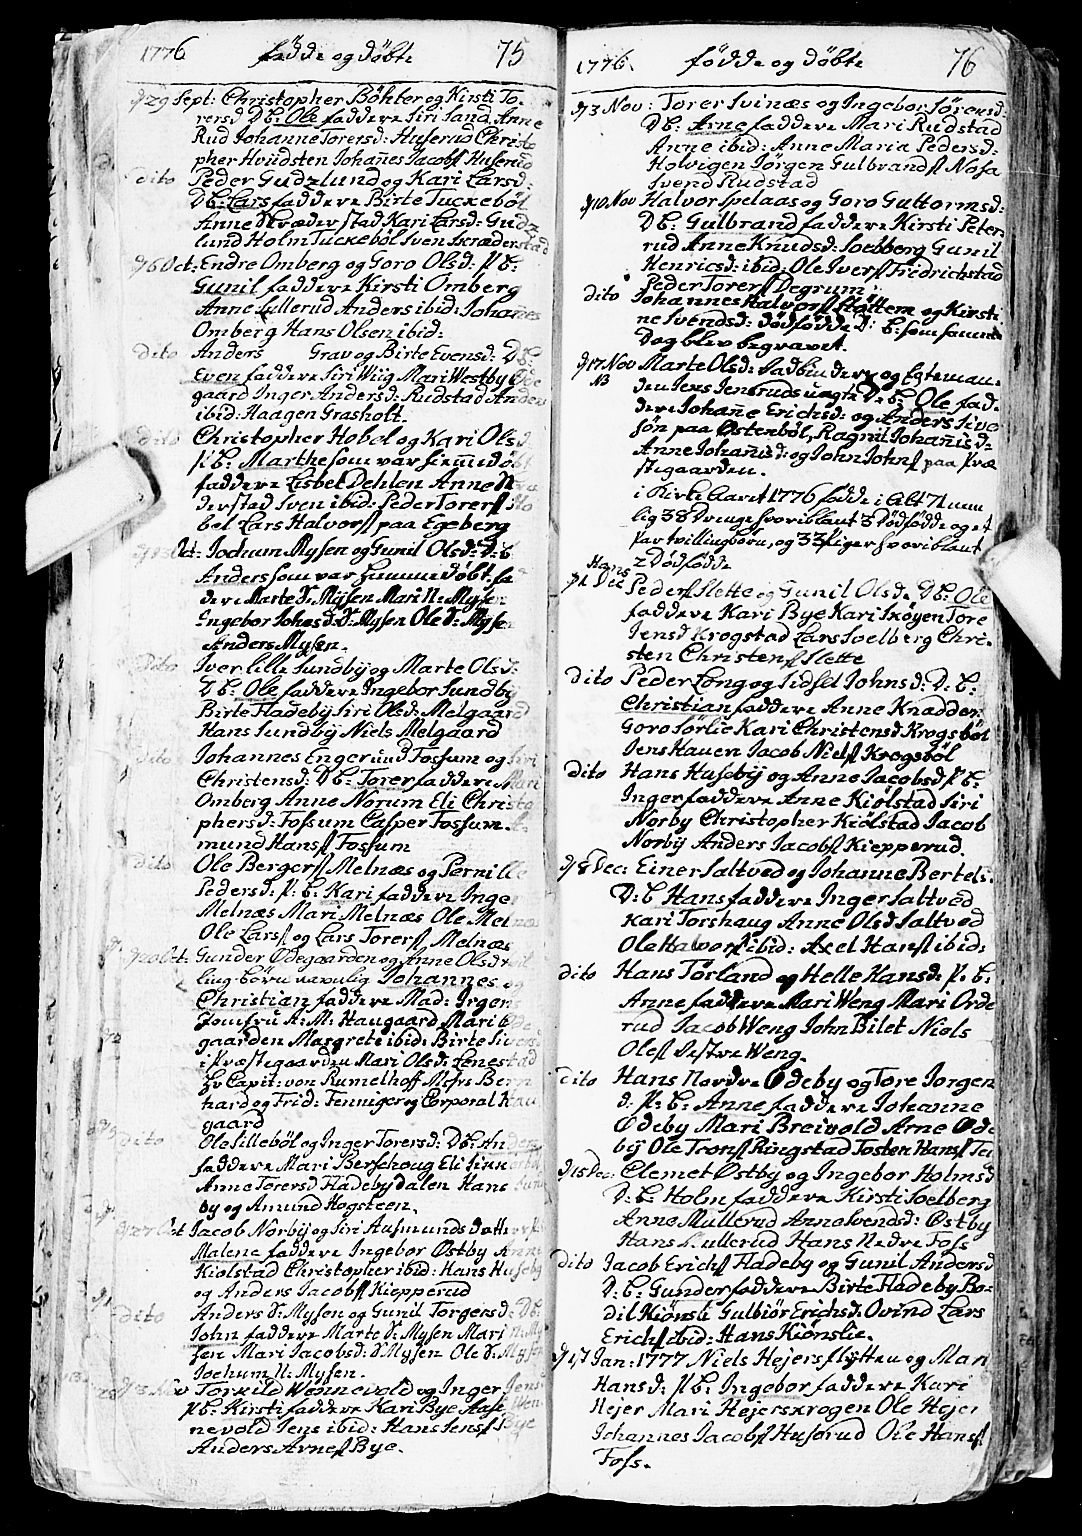 1776 fødde og døbte 75
d/29 Sept: Christopher Böhler og Kirsti To-
rersd D.b: Ole faddere Siri Sand Anne
Rud Johanne Torersd: Huserud Christo
pher Hvidsten Johañes Jacobs Huserud
dito Peder Gudzlund og Kari Larsd:
D.b: Lars faddere Birte Tuckeböl
Anne Skræderstad Kari Larsd: Gudz
lund Holm Tuckeböl Sven Skræderstad
d/6 Oct: Endre Omberg og Goro Olsd: p.b:
Gunil faddere Kirsti Omberg
Anne Lillerud Anders ibid: Johañes
Omberg Hans Olsen ibid:
dito Anders Grav og Birte Evensd: D.b:
Even faddere Siri Wiig Mari Westby Øde
gaard Inger Andersd: Rudstad Anders
ibid: Haagen Grasholt.
dito Christopher Hobøl og Kari Olsd
p.b: Marthe som var hiemedöbt
faddere Lisbet Dehlen Anne
derstad Sven ibid: Peder Torers Ho
bel Lars Halvors paa Egeberg
d/13 Oct: Jochum Mysen og Gunil Olsd: D.b
Anders som var hiemmedöbt fa
dere Marte S: Mysen Mari N: Mysen
Ingebor Johasd: S: Mysen Ole S: Myse
Anders Mysen.
Dito Iver lille Sundby og Marte Olsd:
D.b: Ole faddere Ingebor Sundby
Birte Fladeby Siri Olsd: Melgaard
Hans Sundby Niels Melgaard
dito Johannes Enger und Fossum og Siri
Christensd: D.b: Torer faddere Mari
Omberg Anne Norum Eli Christo
phersd: Fossum Casper Fossum.
mund Hans Fossum
dito Ole Bergers Melnæs og Pernille
Pedersd: p: b: Kari faddere Inger
Melnæs Mari Melnæs Ole Melnæs
Ole Lars og Lars Torers Melnæs
d/20 Oct: Gunder Ødegaarden og Anne Olsd
ling börn navnlig Johannes og
Christian faddere Mad: Irgens
Jomfru A: M: Haugaard Mari Øde
gaarden Margrete ibid: Birte Sivers
i Præstegaarden Mari Olsd: Lenestad
Hr Capit: von Rumelhoff Msrs Bern
hard og Frid: Fenniger og Corporal Hau
gaard
dito Ole Lilleböl og Inger Torersd: D.b: Anders
faddere Mari Berschoug Eli
Anne Torersd Fladeby dalen Hans Sund
by og Amund Hogsteen.
d/27 Oct Jacob Norby og Siri Husmunds datter p:
Malene faddere Ingebor Østby Anne
Kiolstad Christopher ibid: Hans Huseby
og Anders Jacobs Kiepperud
dito Anders S: Mysen og Gunil Torgersd: D.b:
John faddere Marte S: Mysen Mari N: My
sen Mari Jacobsd: S: Mysen Ole S: Mysen
Jochum N: Mysen.
d/3 Nov Torkild Wennevold og Inger Jensd
p.b: Kirsti faddere Kari Bye Aase Wen
nevold Jens ibid: Hans Jens Bye
Anders Arnes Bye.
1776 fødde og døbte 76
d/3 Nov: Torer Svinæs og Ingebor Sørensd:
D.b: Arne faddere Mari Rudstad
Anne ibid: Anne Maria Pedersd:
Holvigen Jörgen Gulbrands Nosa
Svend Rudstad
d/10 Nov Halvor Spelaas og Goro Guttormsd:
D.b: Gulbrand faddere Kirsti Peters
rud Anne Knudsd: Soelberg Gunil
Henricsd: ibid: Ole Ivers Fridrichstad
Peder Torers Degrum
dito Johannes Halvors Slottem og Kirsti
ne Svendsd: dödfödde D: b: som samme
Dag blev begravet.
d/17 Nov Marte Olsd: Sadbinder og Egteman-
NB den Jens Jensruds uægte D.b: Ole fad-
dere Johañe Erichsd: og Anders Siva
sön paa Østenböl, Ragnil Johañisd:
Anne Johañisd: og John Johns paa Præ
stegaarden.
i Kirke Aaret 1776 fødde i alt 71 nem
lig 38 Drenge hvoriblant 3 Dödfødde og et
par tvillingbörn, og 33 Piger hvoriblant
2 Dödfødde
Hans
d/1 Dec Peders Slette og Gunil Olsd: D.b: Ole
faddere Kari Bye Kari Skøyen Tore
Jensd Krogstad Lars Soelberg Chri-
sten Christens Slette
dito Peder Long og Sidsel Johnsd: D: b:
Christian faddere Anne Knadder
Goro Sörlie Kari Christensd Krogsböl
Jens Hauen Jacob Niels Krogsböl
dito Hans Huseby og Anne Jacobsd p: b:
Inger faddere Anne Kiölstad Siri
Norby Christopher Kiölstad Jacob
Norby Anders Jacobs Kiepperud.
d/8 Dec: Einer Saltved og Johanne Bertels:
D.b Hans faddere Inger Saltved
Kari Torshaug Anne Olsd Saltved
Ole Halvors ibid: Axel Hans ibid:
dito Hans Tørland og Helle Hansd: p. b:
Anne faddere Mari Weng Mari Orde
rud Jacob Weng John Bilet Niels
Oles Sestre Weng.
dito Hans Nordre Ødeby og Tore Jorgen
d: p: b: Anne faddere Johanne
Ødeby Mari Breivold Arne Øde
by Ole Trons Ringstad Tosten Hans
d/15 Dec: Clemet Østby og Ingebor Holmsd
D.b Holm faddere Kirsti Soelberg
Anne Mullerud Anne Svendsd: Østby
Hans Mullerud Hans Nedre Foss
dito Jacob Erichs Fladeby og Gunil Andersd
D.b: Gunder faddere Birte Fladeby Bo-
dil Kiönsli Gulbiör Erichsd: Ovind Lars
Erichs ibid: Hans Kiönslie.
d/1 Jan: 1777 Niels Hejerslytten og Mari
Hansd: p.b: Ingebor faddere Kari
Hejer Mari Hejerskrogen Ole Hejer
Johannes Jacobs Huserud Ole Hans
Foss.